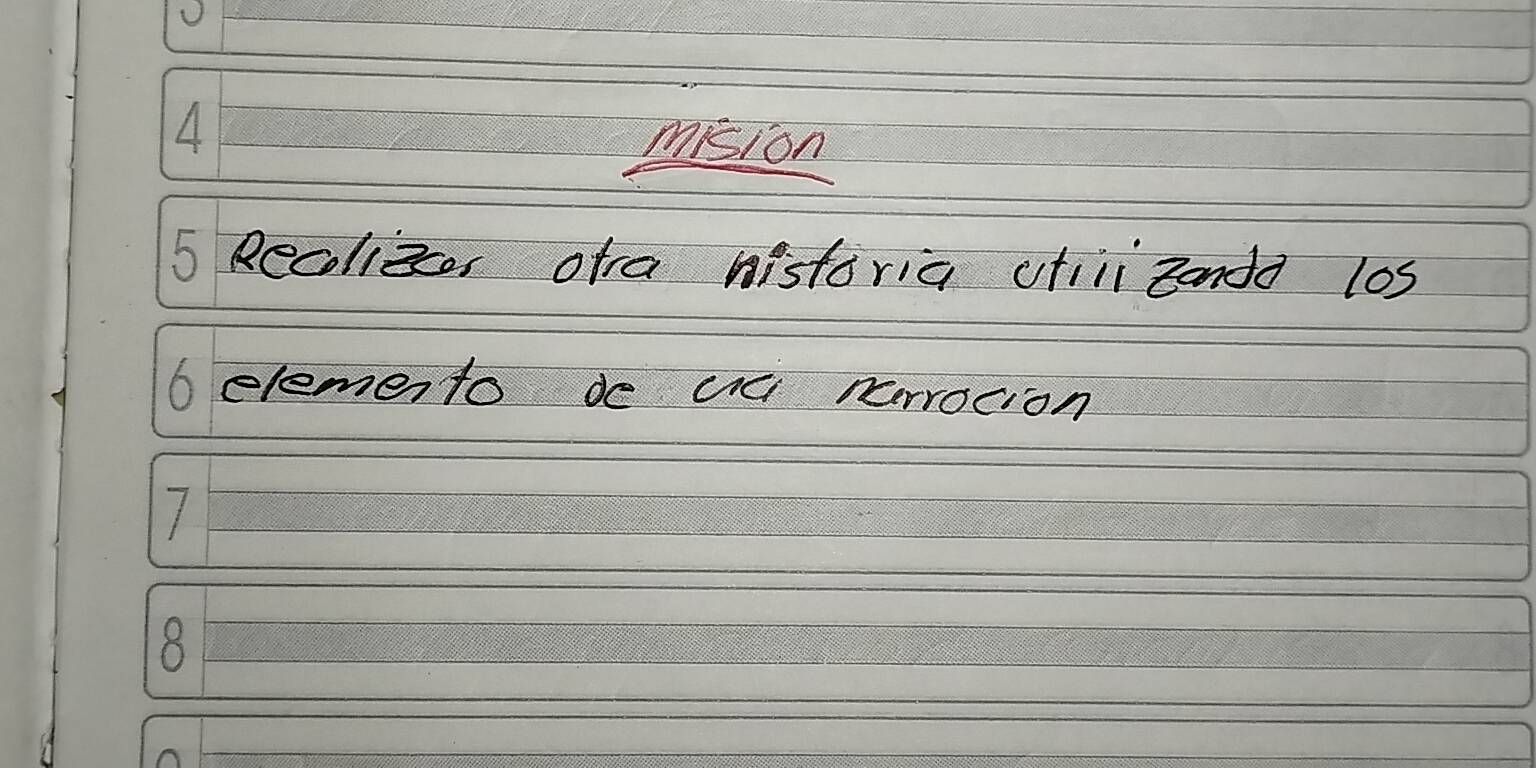 4
mision
5 Realizar otra historia utilizando los
6 elemento de una narracion
7
8